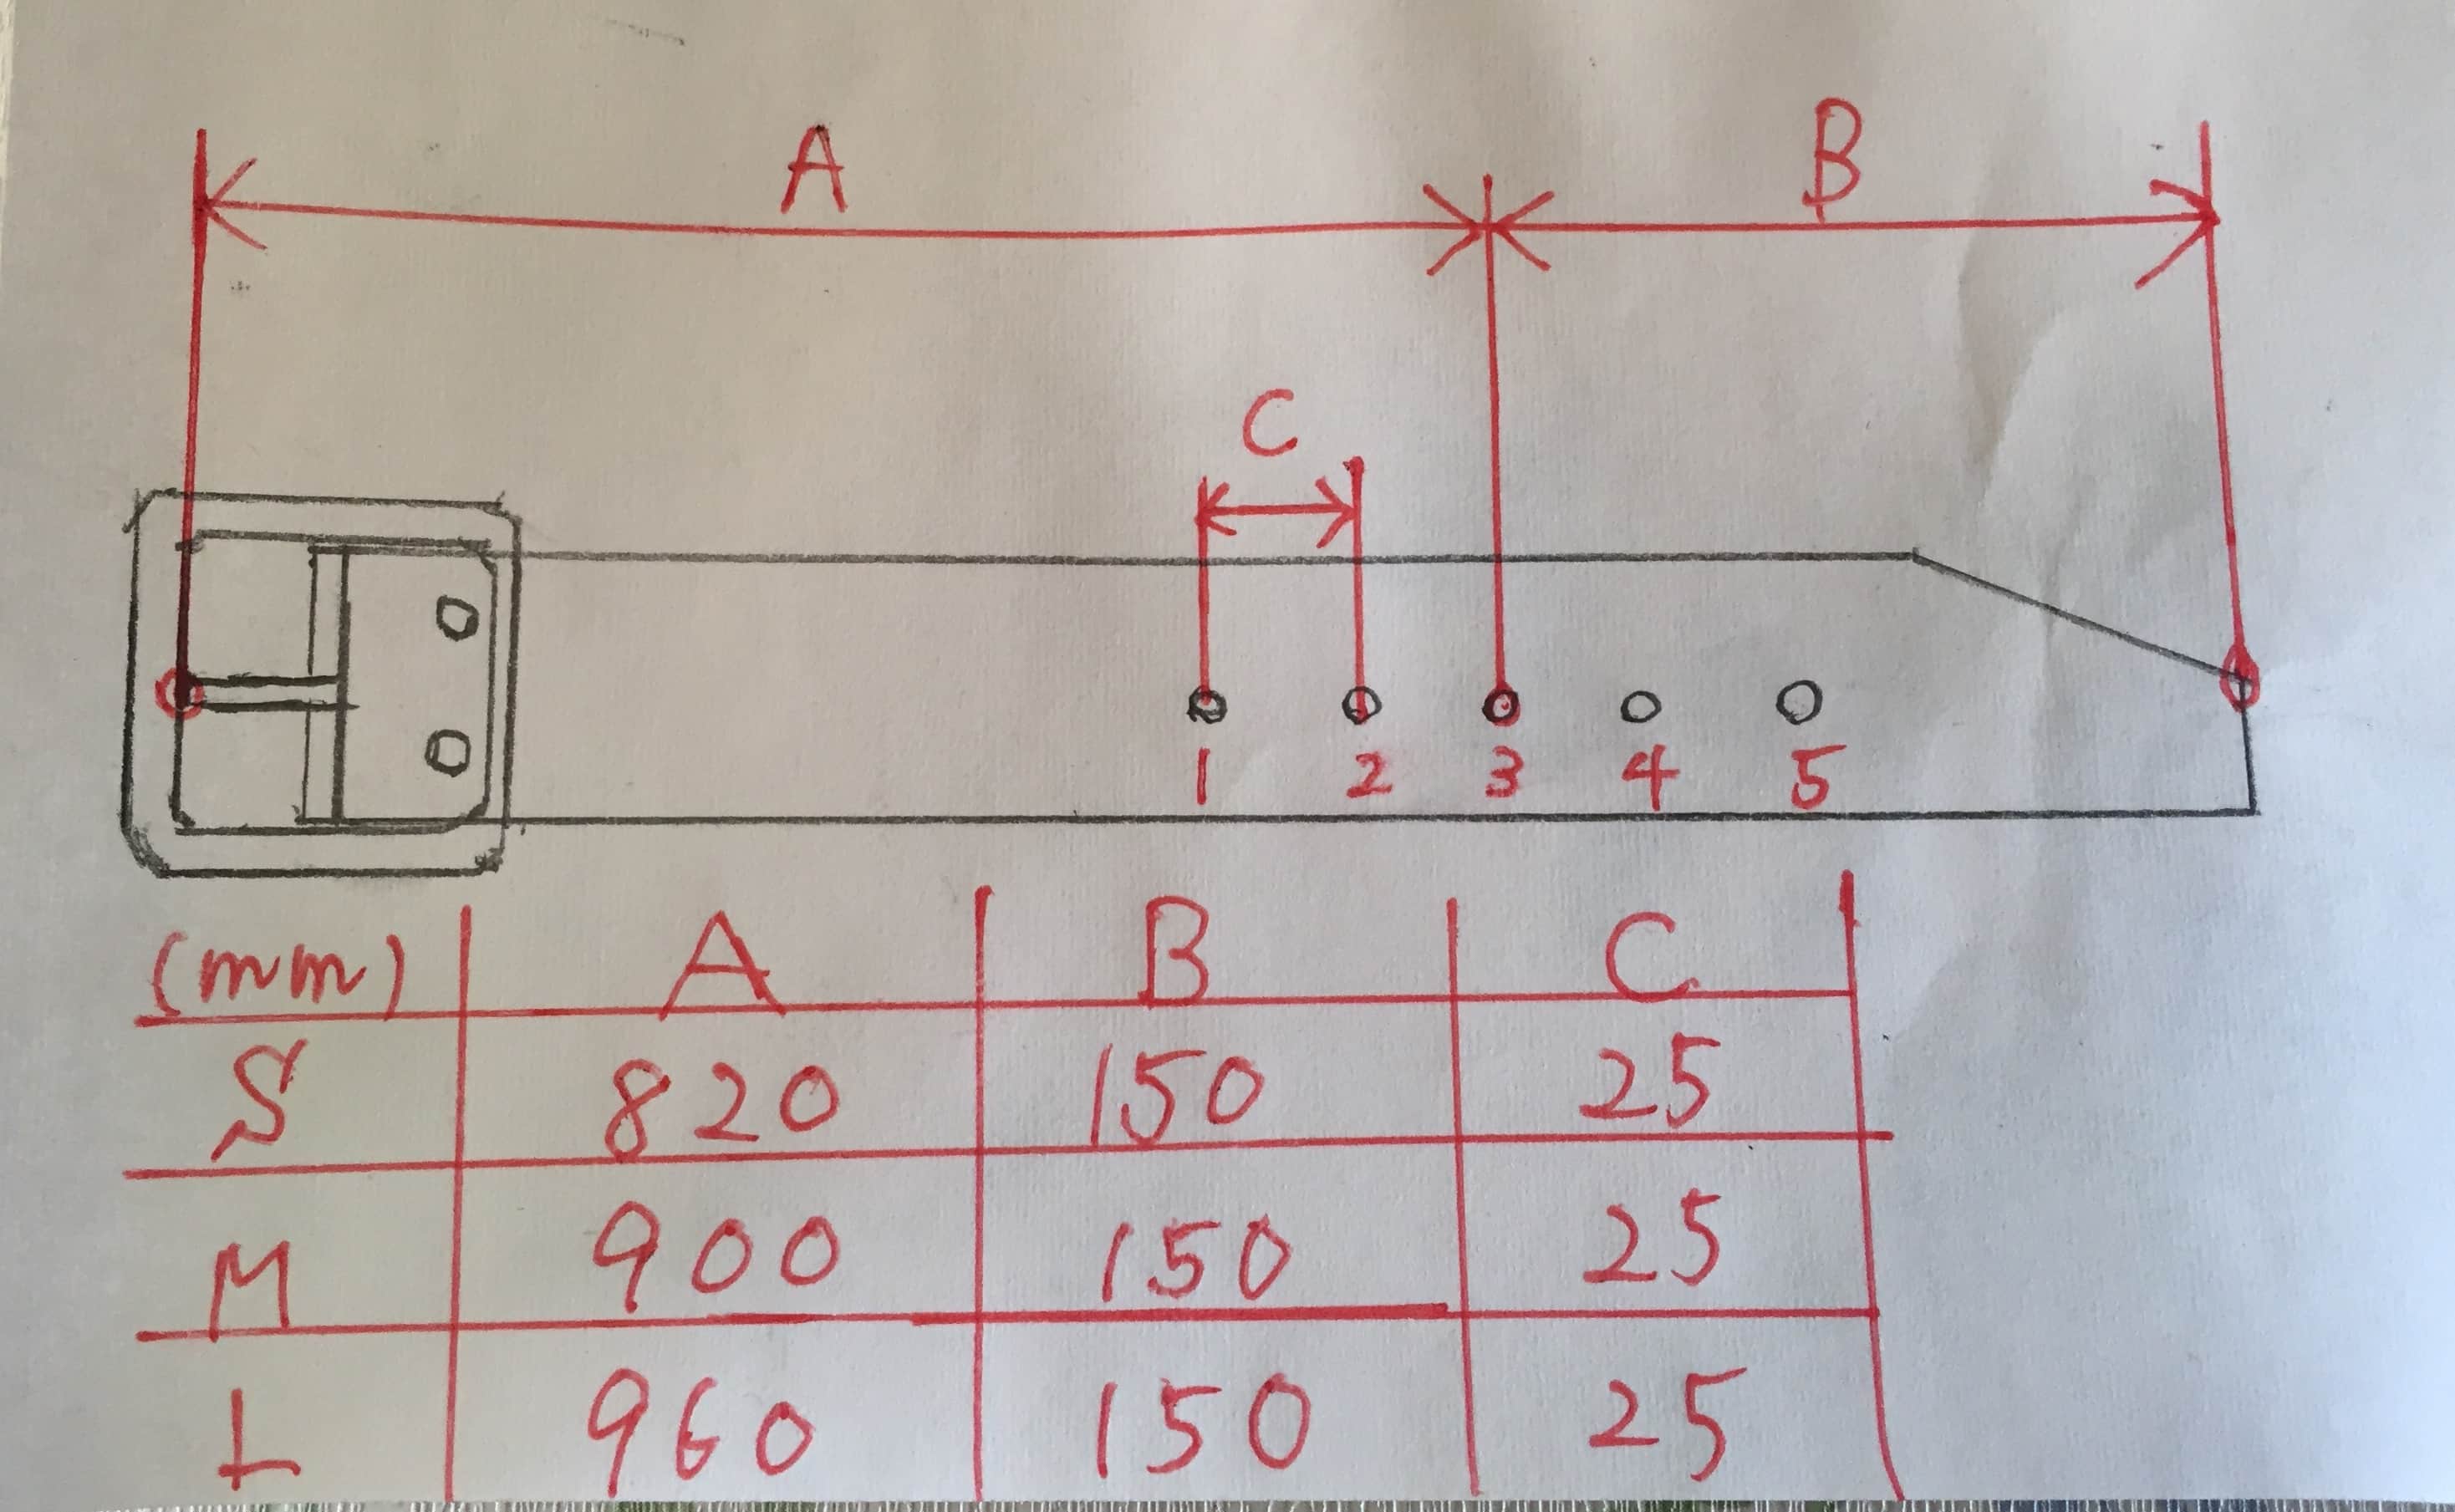 A
B
C
1 2 3 4 5
(mm) A B C
S 820 150 25
M 900 150 25
L 960 150 25